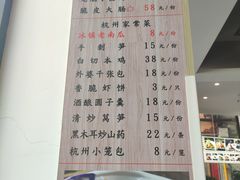 脆皮大肠 58元/份
杭州家常菜
冰镇老南瓜 8元/份
手剥笋 15元/份
白切本鸡 38元/份
外婆千张包 18元/份
香脆虾饼 3元/只
酒酿圆子羹 18元/份
清炒莴笋 15元/份
黑木耳炒山药 22元/条
杭州小笼包 8元/笼